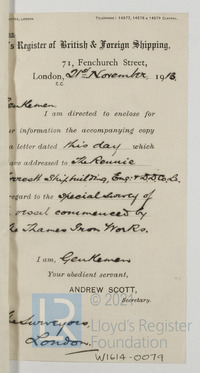 TELEPHONE: 14877, 14878 & 14879 CENTRAL.
's Register of British & Foreign Shipping,
71, Fenchurch Street,
London, 21st November 1913
E.C.
Gentlemen
I am directed to enclose for
our information the accompanying copy
a letter dated this day which
ave addressed to The Rennie
orrestt Shipbuilding, Eng. & D.D. Co. Ld.
egard to the special survey of
vessel commenced by
he Thames Iron Works.
I am, Gentlemen
Your obedient servant,
ANDREW SCOTT,
Secretary.
he Surveyors,
London.
© 2021
Lloyd's Register
Foundation
W1614-0079